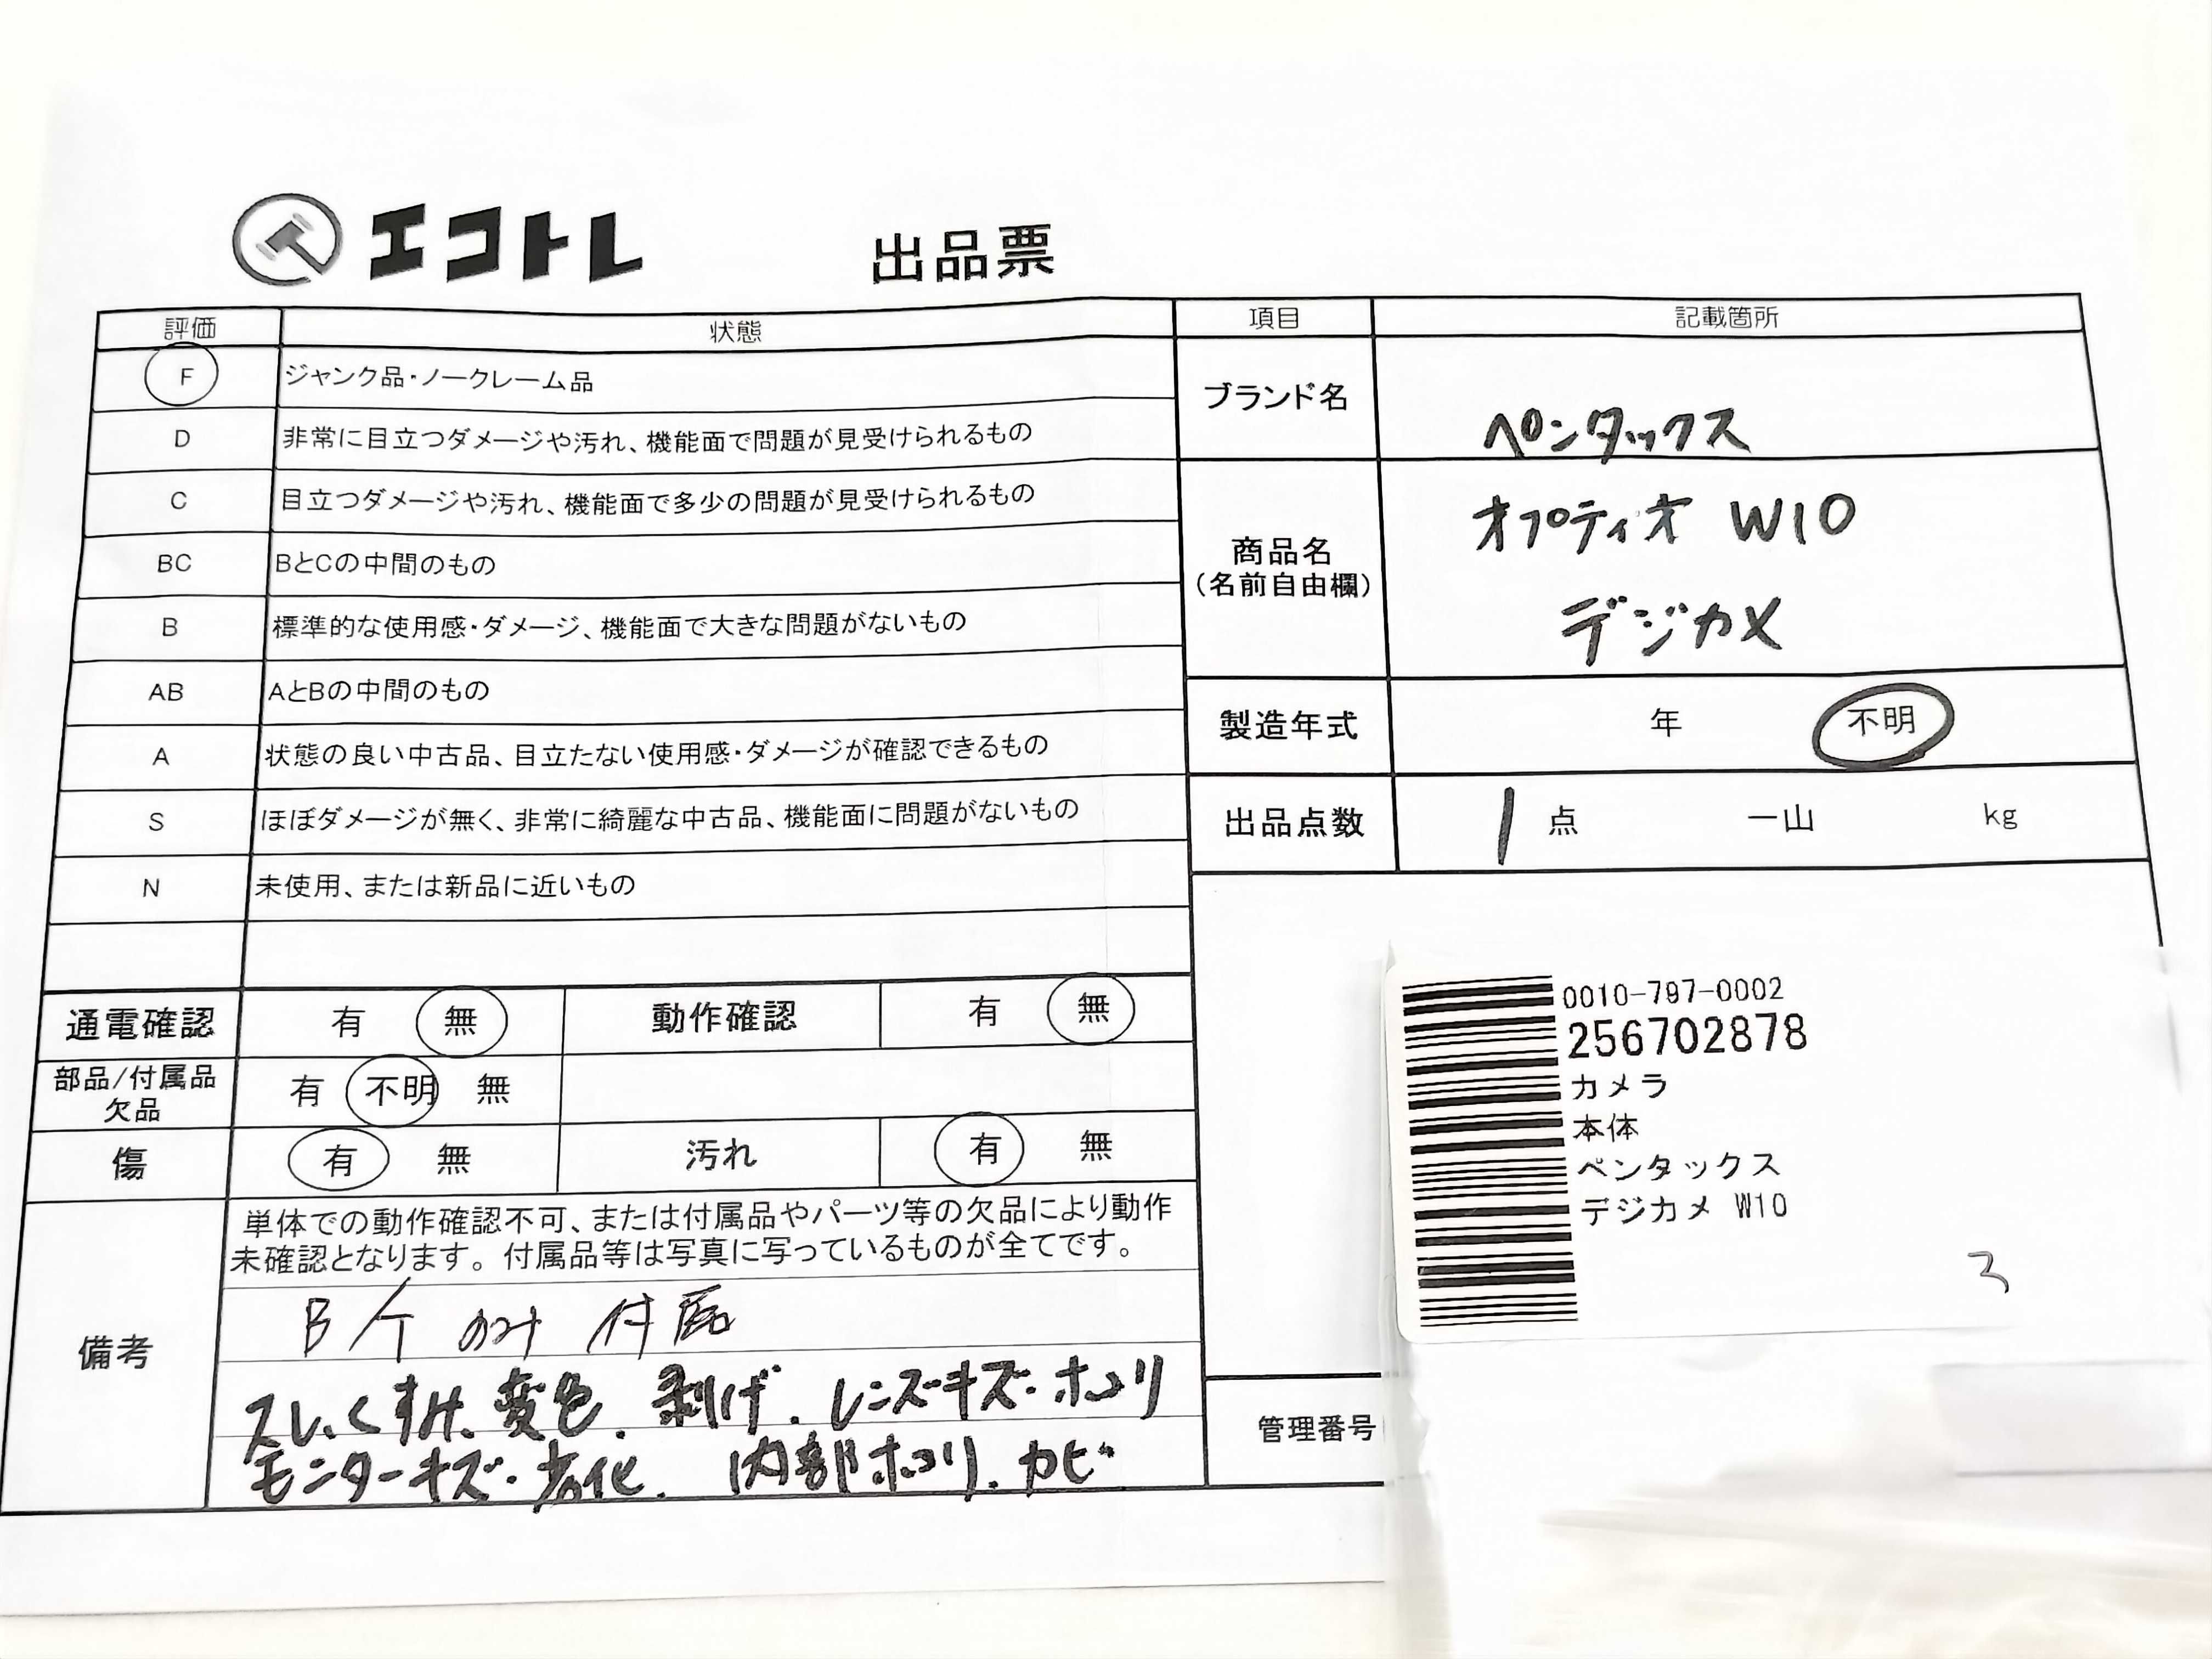 エコトレ 出品票
評価 状態
F ジャンク品・ノークレーム品
D 非常に目立つダメージや汚れ、機能面で問題が見受けられるもの
C 目立つダメージや汚れ、機能面で多少の問題が見受けられるもの
BC BとCの中間のもの
B 標準的な使用感・ダメージ、機能面で大きな問題がないもの
AB AとBの中間のもの
A 状態の良い中古品、目立たない使用感・ダメージが確認できるもの
S ほぼダメージが無く、非常に綺麗な中古品、機能面に問題がないもの
N 未使用、または新品に近いもの
通電確認 有 無 動作確認 有 無
部品/付属品
欠品 有 不明 無
傷 有 無 汚れ 有 無
備考
単体での動作確認不可、または付属品やパーツ等の欠品により動作
未確認となります。付属品等は写真に写っているものが全てです。
B/T のみ 付属
スレ、くすみ、変色、剥げ、レンズキズ・ホコリ
モニターキズ・劣化、内部ホコリ、カビ
項目 記載箇所
ブランド名 ペンタックス
商品名
(名前自由欄)
オプティオ W10
デジカメ
製造年式 年 不明
出品点数 1 点 一山 kg
0010-797-0002
256702878
カメラ
本体
ペンタックス
デジカメ W10
3
管理番号